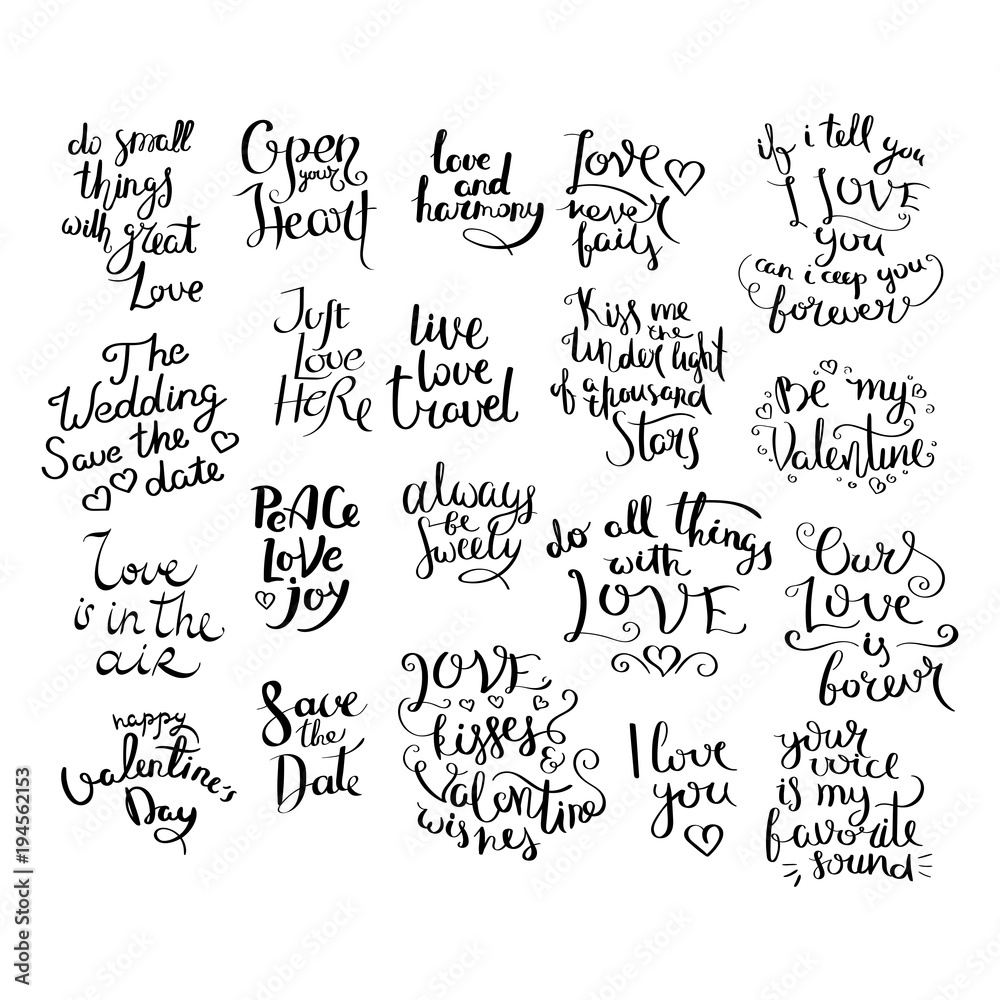 do small
things
with great
Love
Open
your
Heart
love
and
harmony
Love
never
fails
if i tell you
I LOVE
you
can i ceep you
forever
The
Wedding
Save the
date
Just
Love
HeRe
live
love
travel
Kiss me
the
Under light
of a thousand
Stars
Be my
Valentine
Love
is in the
air
PeACe
Love
joy
always
be
Sweety
do all things
with
LOVE
Our
Love
is
forevr
happy
Valentine's
Day
Save
the
Date
LOVE,
kisses
&
Valentine
wishes
I love
you
your
voice
is my
favorite
sound
Adobe Stock | #194562153